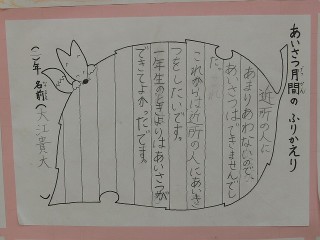 あいさつ月間の ふりかえり
近所の人に
あまりあわないので、
あいさつはできませんでし
た。
これからは近所の人にあいさ
つをしたいです。
一年生のときよりはあいさつが
できてよかったです。
(二)年 名前(大江貴大)